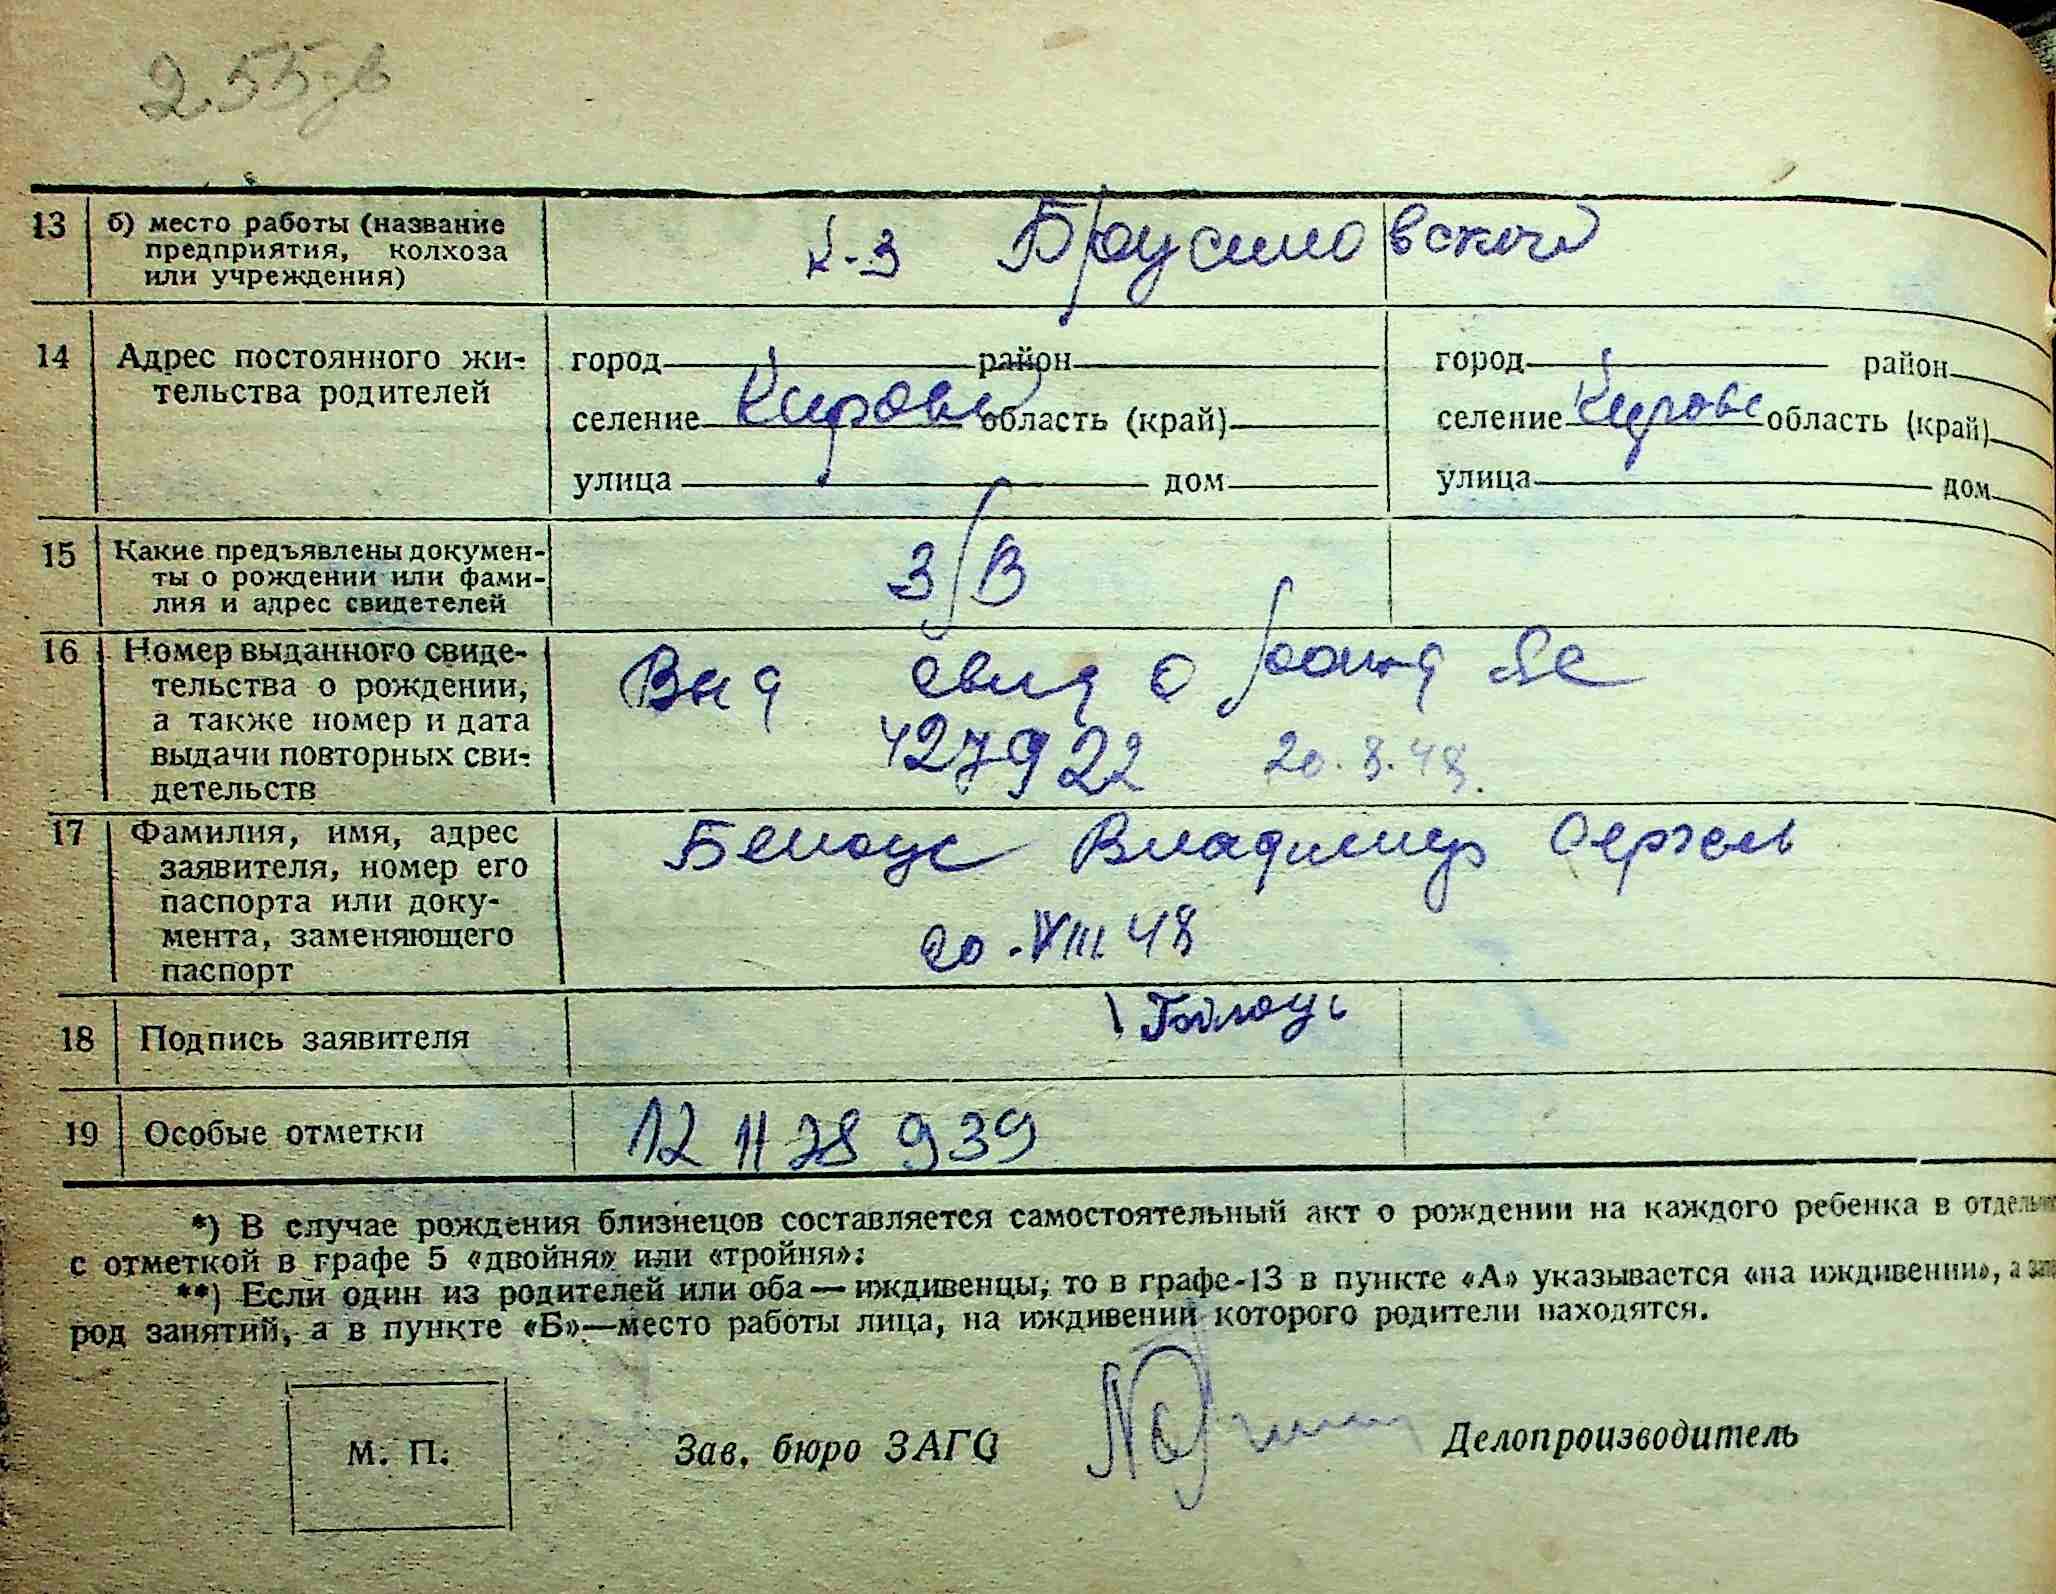 255 дв
13 б) место работы (название
предприятия, колхоза
или учреждения)
к-з Брусиловской
14 Адрес постоянного жи-
тельства родителей
город район город район
селение Кирово область (край) селение Кирово область (край)
улица дом улица дом
15 Какие предъявлены докумен-
ты о рождении или фами-
лия и адрес свидетелей
З/В
16 Номер выданного свиде-
тельства о рождении,
а также номер и дата
выдачи повторных сви-
детельств
Выд свид о рожд
427922 20.8.48.
17 Фамилия, имя, адрес
заявителя, номер его
паспорта или доку-
мента, заменяющего
паспорт
Белоус Владимир Сергеев
20.VIII 48
18 Подпись заявителя
19 Особые отметки
12 11 28 939
*) В случае рождения близнецов составляется самостоятельный акт о рождении на каждого ребенка в
с отметкой в графе 5 «двойня» или «тройня».
**) Если один из родителей или оба — иждивенцы, то в графе-13 в пункте «А» указывается «на иждивении», а
род занятий, а в пункте «Б»—место работы лица, на иждивении которого родители находятся.
М. П. Зав. бюро ЗАГС Делопроизводитель